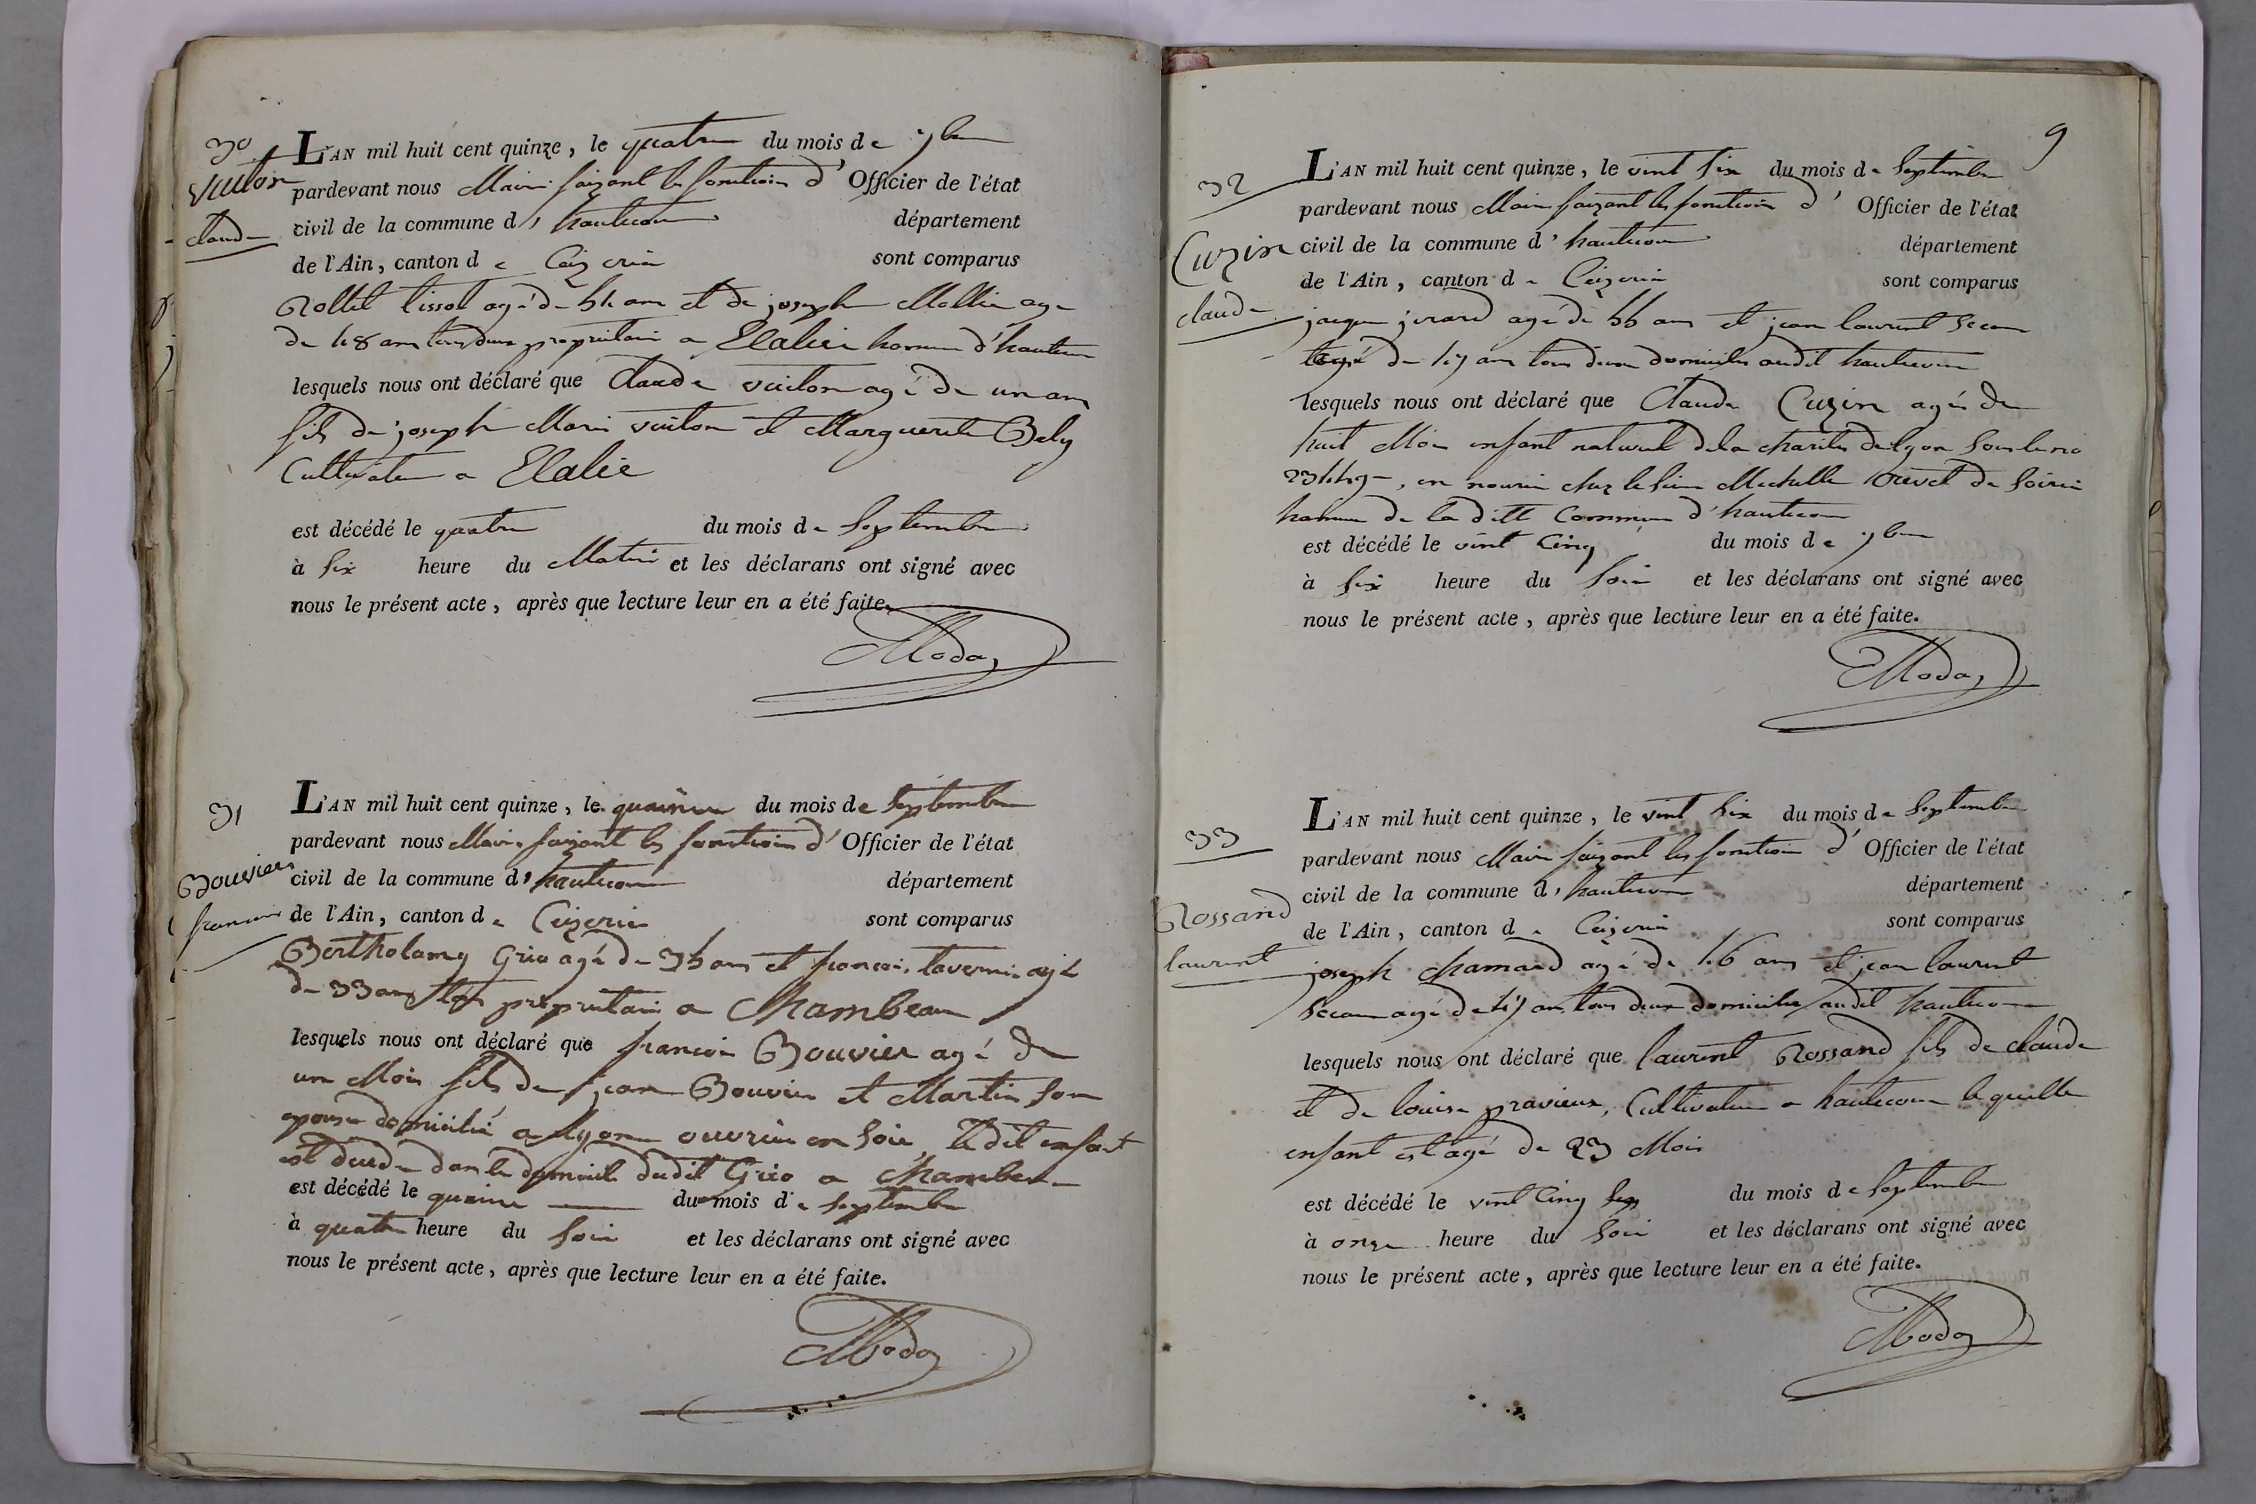 30
L'AN mil huit cent quinze, le quatre du mois de 7bre
vuiton
pardevant nous Maire faizant les fonctions d' Officier de l'état
claude
civil de la commune d' hautecour département
de l'Ain, canton de Ceizeria sont comparus
tissot agé de ans et de joseph Mollie age
de 48 ans tous deux proprietaire a Elalie hameau d'hautecour
lesquels nous ont déclaré que Claude vuiton agé de un an
fils de joseph Marie vuiton et Marguerite Bely
Cultivateur a Elalie
est décédé le quatre du mois de Septembre
à Six heure du Matin et les déclarans ont signé avec
nous le présent acte, après que lecture leur en a été faite.
31
L'AN mil huit cent quinze, le quainze du mois de Septembre
pardevant nous Maire faizant les fonctions d' Officier de l'état
Bouvier
civil de la commune d' hautecour département
francois
de l'Ain, canton de Ceizeria sont comparus
Bertholamy agé de 35 ans et francois tavernie agé
de 33 ans proprietaire a Chambeau
lesquels nous ont déclaré que francois Bouvier agé de
un Mois fils de jean Bouvier et Martin Son
epouse domicilié a lyon ouvrier en Soie ledit enfant
est decede dans le domicile dudit a Chambeau
est décédé le quainze du mois de Septembre
à quatre heure du Soir et les déclarans ont signé avec
nous le présent acte, après que lecture leur en a été faite.
9
32
L'AN mil huit cent quinze, le vint Six du mois de Septembre
pardevant nous Maire faizant les fonctions d' Officier de l'état
Cuzin
civil de la commune d' hautecour département
de l'Ain, canton de Ceizeria sont comparus
claude
jacque jerard agé de 55 ans et jean laurent Secon
agé de 47 ans tous deux domicilies audit hautecour
lesquels nous ont déclaré que Claude Cuzin agés de
huit Mois enfant naturel de la charites de lyon Sous le no
en nourice chez le Sieur de
hameau de la ditt Commune d'hautecour
est décédé le vint Cinq du mois de 7bre
à Six heure du Soir et les déclarans ont signé avec
nous le présent acte, après que lecture leur en a été faite.
33
L'AN mil huit cent quinze, le vint Six du mois de Septembre
pardevant nous Maire faizant les fonctions d' Officier de l'état
Rossand
civil de la commune d' hautecour département
de l'Ain, canton de Ceizeria sont comparus
laurent
joseph Chamard agé de 46 ans et jean laurent
Secon agé de 47 ans tous deux domicilies audit hautecour
lesquels nous ont déclaré que laurent Rossand fils de claude
et de louise pravieux, Cultivateur a hautecour lequelle
enfant est agé de 23 Mois
est décédé le vint Cinq du mois de Septembre
à onze heure du Soir et les déclarans ont signé avec
nous le présent acte, après que lecture leur en a été faite.